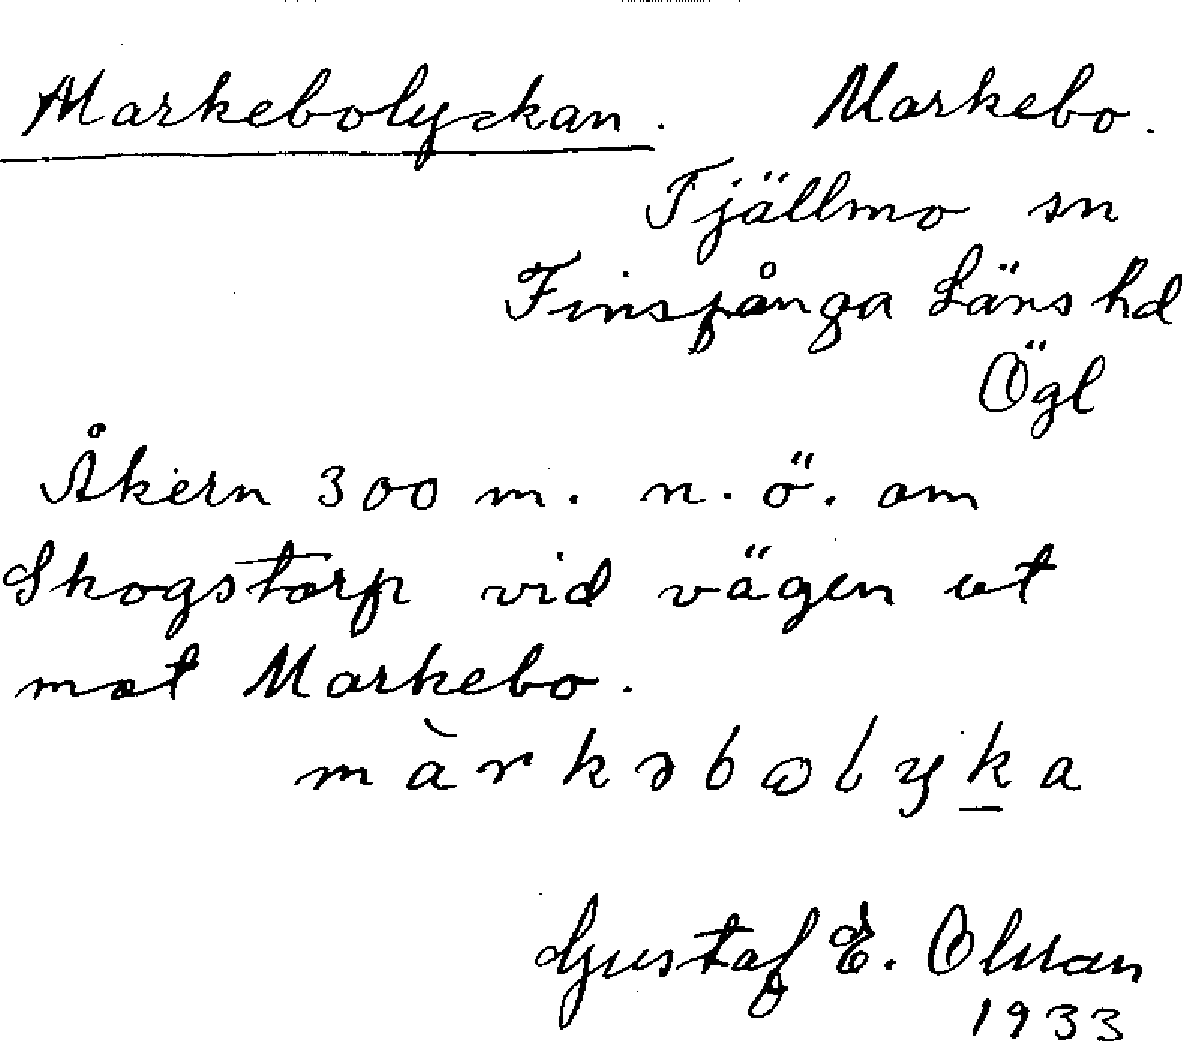 Markebolyckan. Markebo.
Tjällmo sn
Finspånga Läns hd
Ögl
Åkern 300 m. n.ö. om
Skogstorp vid vägen ut
mot Markebo.
màrkəbolyka
Gustaf E.
1933